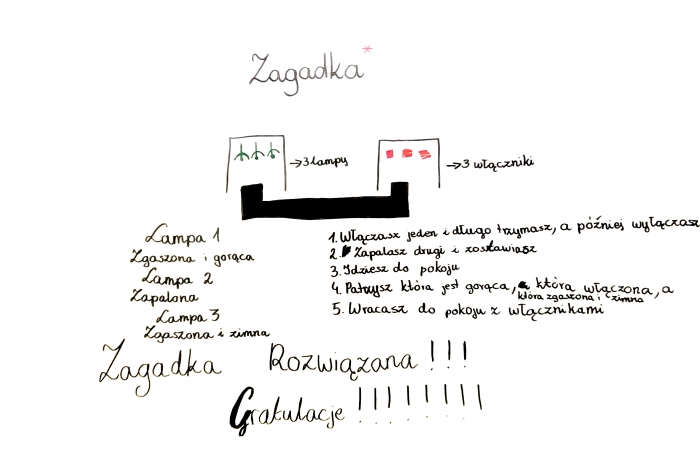 Zagadka*
→3 lampy
→3 włączniki
Lampa 1
Zgaszona i gorąca
Lampa 2
Zapalona
Lampa 3
Zgaszona i zimna
1. Włączasz jeden i długo trzymasz, a później wyłączasz
2. Zapalasz drugi i zostawiasz
3. Idziesz do pokoju
4. Patrzysz która jest gorąca, która włączona, a
która zgaszona i zimna
5. Wracasz do pokoju z włącznikami
Zagadka Rozwiązana !!!
Gratulacje !!!!!!!!